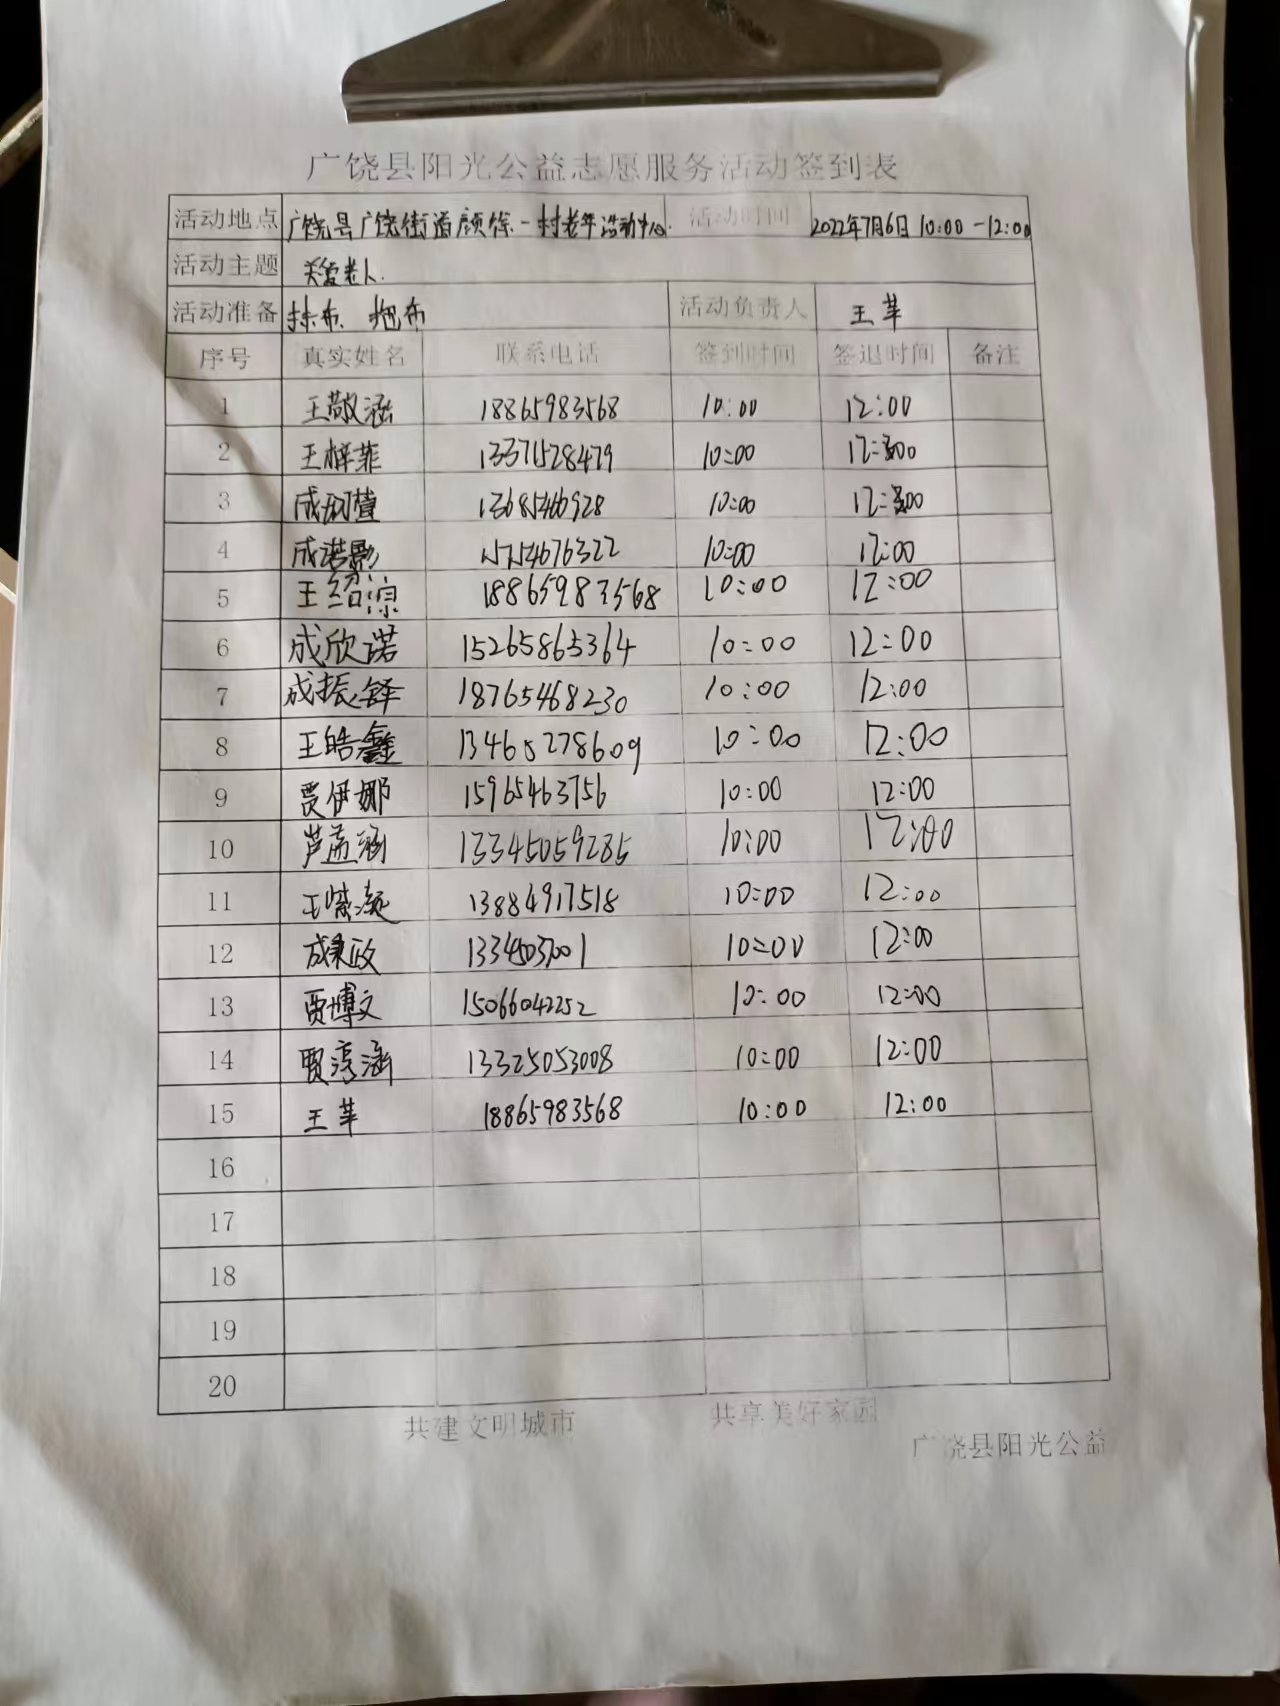 广饶县阳光公益志愿服务活动签到表
活动地点 广饶县广饶街道颜徐一村老年活动中心 活动时间 2022年7月6日 10:00-12:00
活动主题 关爱老人.
活动准备 抹布、拖布 活动负责人 王苹
序号 真实姓名 联系电话 签到时间 签退时间 备注
1 王敬涵 18865983568 10:00 12:00
2 王梓菲 13371528479 10:00 12:00
3 10:00 12:00
4 成诺影 15754676322 10:00 12:00
5 王绍淙 18865983568 10:00 12:00
6 成欣诺 15265865364 10:00 12:00
7 成振铎 18765468230 10:00 12:00
8 王皓鑫 13465278609 10:00 12:00
9 贾伊娜 15965463756 10:00 12:00
10 芦孟涵 13345059285 10:00 12:00
11 王紫凝 13884917518 10:00 12:00
12 成秉政 13345037001 10:00 12:00
13 贾博文 15066042252 10:00 12:00
14 贾淳涵 13325053008 10:00 12:00
15 王苹 18865983568 10:00 12:00
16
17
18
19
20
共建文明城市 共享美好家园
广饶县阳光公益